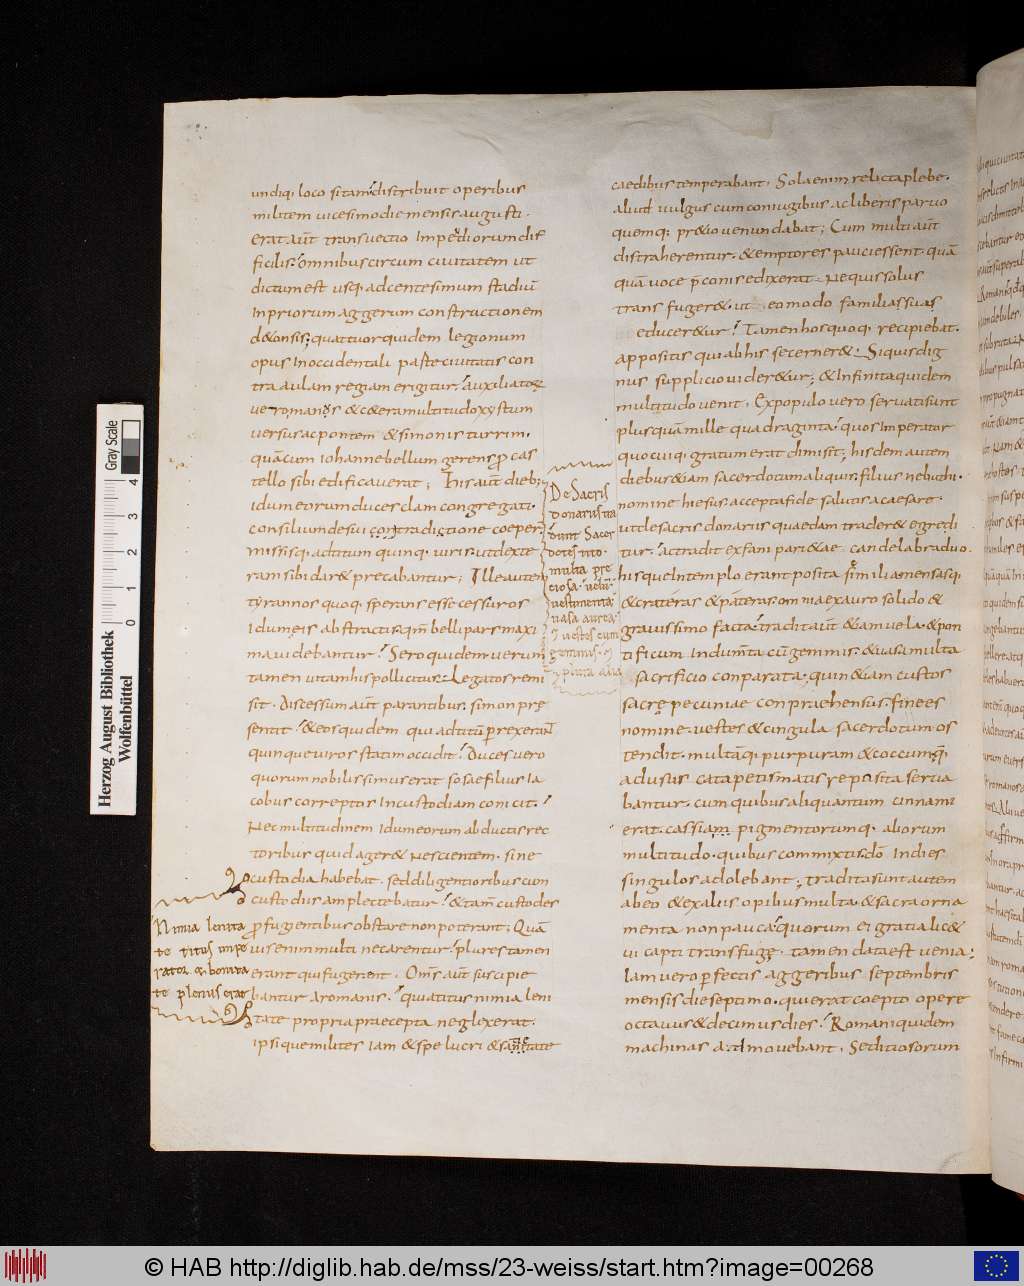 undiq; loco sitam distribuit operibus
militem uicesimo die mensis augusti.
erat aut transuectio Impediorum dif
ficilis. omnibus circum ciuitatem ut
dictum est usq; ad centesimum stadiu
In priorum aggerum constructionem
d&onsis; quattuor quidem legionum
opus In occidentali parte ciuitatis con
tra aulam regiam erigitur. auxiliator
ue romanus & c&era multitudo xystum
uersus ac pontem & simonis turrim.
quam cum iohanne bellum gerens p cas
tello sibi edificauerat; his aut dieb;
Idumeorum duces clam congregati.
consilium desui contradictione coeper
missisq; ad titum quinq; uiris. ut dexte
ram sibi dar& precabantur; Ille autem
tyrannos quoq; sperans esse cessuros
Idumeis abstractis. qm belli pars maxi
ma uidebantur. Sero quidem uerum
tamen uitam his pollicitur. Legatos remi
sit. discessum aut parantibus. simon pre
sentit. & eos quidem qui ad titu perrexerant
quinque uiros statim occidit. duces uero
quorum nobilissimus erat sosae filius Ia
cobus correptos In custodiam conicit.
Nec multitudinem Idumeorum abductis rec
toribus quid ager& nescientem. sine
custodia habebat. sed diligentioribus eum
custodiis amplectebatur. & tam custodes
pfugientibus obstare non poterant; Qua
uis enim multi necarentur. plures tamen
erant qui fugerent. Oms aut suscipie
bantur a romanis. qui a titus nimia leni
tate propria praecepta neglixerat.
ipsique milites Iam & spe lucri & sanetate
Nimia lenita
te titus impe
rator & bonita
te plenus erat
De Sacris
donariis tra
dunt Sacer
dotes tito.
multa pre
ciosa. uelu
uestimenta
uasa aurea
& uestes cum
gemmis. &
plura alia
caedibus temperabant. Sola enim relicta plebe.
aliud uulgus cum coniugibus ac liberis paruo
quemq; pr&io uenundabat; Cum multi aut
distraherentur. & emptores pauci essent. qua
qua uoce pconis edixerat. Nequis solus
transfuger&. ut eo modo familias suas
educer&ur. Tamen hos quoq; recipiebat.
appositis qui ab his secerner&. Siquis dig
nus supplicio uider&ur; & Infinita quidem
multitudo uenit. Ex populo uero seruati sunt
plus quam mille quadraginta. quos Imperator
quo cuiq; gratum erat dimisit; hisdem autem
diebus & iam sacerdotum aliquis. filius nebuthi.
nomine hiesus. accepta fide salutis a caesare.
ut de sacris donariis quaedam trader& egredi
tur. ac tradit ex fani pari&ae. candelabra duo.
hisque In templo erant posita similia mensasq;
& crateras & pateras. omnia ex auro solido &
grauissimo facta. tradit aut & iam uela. & pon
tificum Indumta cu gemmis. & uasa multa
sacrificio conparata. quin & iam custos
sacre pecuniae conpraehensus. finees
nomine. uestes & cingula sacerdotum os
tendit. multaq; purpuram & coccumq;
ad usus catapetismatis reposita serua
bantur. cum quibus aliquantum cinnami
erat. cassiam pigmentorumq; aliorum
multitudo. quibus commixtis. do In dies
singulos adolebant; tradita sunt autem
ab eo & ex aliis opibus multa & sacra orna
menta non pauca. quorum ei gratia lic&
ui capti transfuge. tamen data est uenia;
Iam uero pfectis aggeribus septembris
mensis die septimo. qui erat coepto opere
octauus & decimus dies. Romani quidem
machinas admouebant. Seditiosorum
Herzog August Bibliothek
Wolfenbüttel
Gray Scale
0 1 2 3 4
© HAB http://diglib.hab.de/mss/23-weiss/start.htm?image=00268